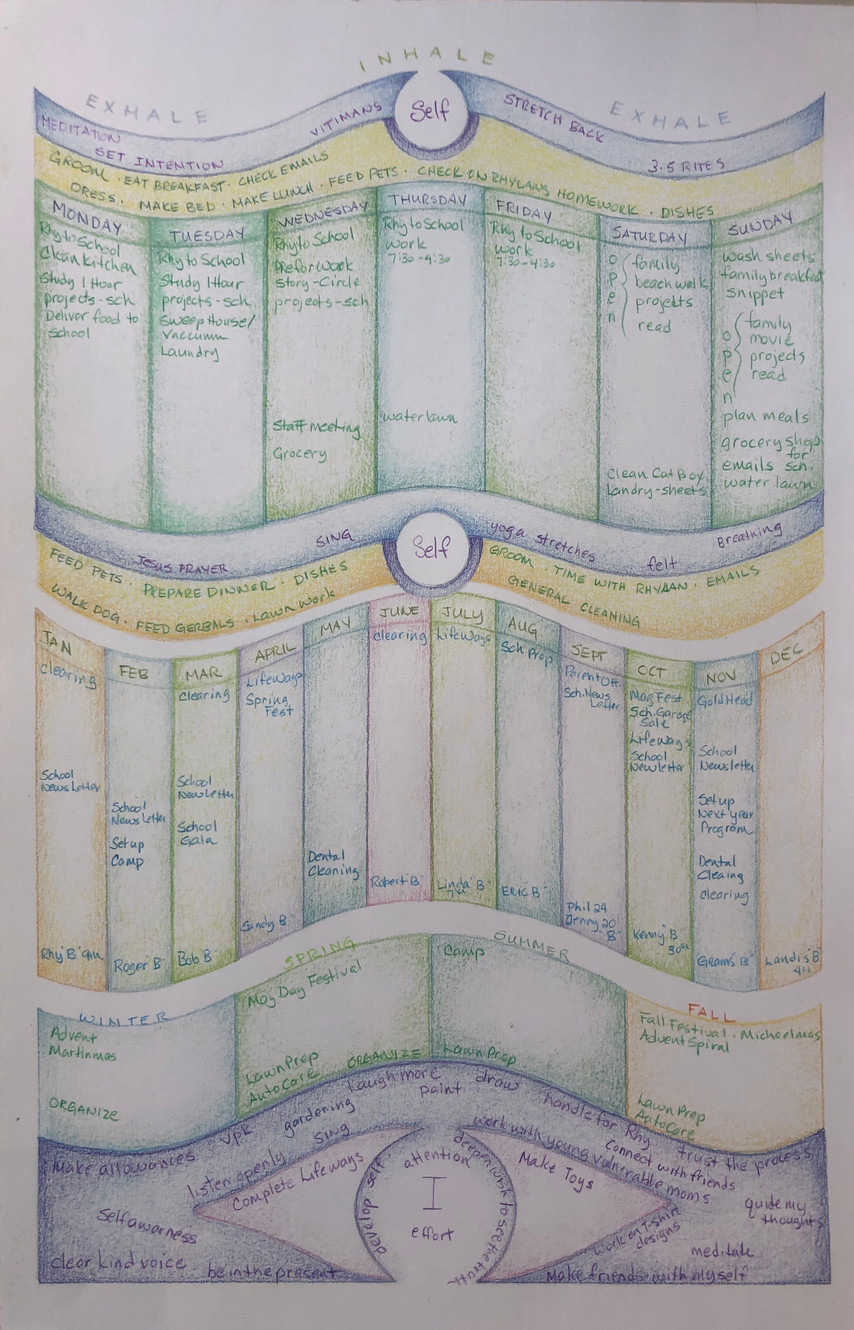 INHALE
EXHALE
EXHALE
MEDITATION
SET INTENTION
VITIMANS
Self
STRETCH BACK
3.5 RITES
GROOM · EAT BREAKFAST · CHECK EMAILS
DRESS · MAKE BED · MAKE LUNCH · FEED PETS · CHECK ON RHYLANS HOMEWORK · DISHES
MONDAY
Rhy to School
Clean kitchen
Study 1 Hour
projects - sch
Deliver food to
School
TUESDAY
Rhy to School
Study 1 Hour
projects - sch
Sweep House/
Vaccumm
Laundry
WEDNESDAY
Rhy to School
Prefor Work
Story-Circle
projects-sch
Staff meeting
Grocery
THURSDAY
Rhy to School
Work
7:30-4:30
water lawn
FRIDAY
Rhy to School
work
7:30-4:30
SATURDAY
open
family
beach walk
projects
read
Clean Cat Box
Landry-sheets
SUNDAY
wash sheets
family breakfast
snippet
open
family
movie
projects
read
plan meals
grocery shop
for
emails sch.
water lawn
JESUS PRAYER
SING
Self
yoga stretches
felt
Breathing
FEED PETS · PREPARE DINNER · DISHES
WALK DOG · FEED GERBALS · Lawn work
GROOM · TIME WITH RHYAAN · EMAILS
GENERAL CLEANING
JAN
clearing
School
News Letter
Rhy "B" 9th
FEB
School
News Letter
Set up
Camp
Roger "B"
MAR
Clearing
School
NewLetter
School
Gala
Bob "B"
APRIL
LifeWays
Spring
Fest
Sindy B
MAY
Dental
Cleaning
JUNE
clearing
Robert "B"
JULY
LifeWays
Linda "B"
7th
AUG
Sch Prop
Eric "B"
SEPT
Parent Ori.
Sch. News
Letter
Phil 24
Jenny 20
B"
OCT
Mag Fest
Sch. Garage
Sale
Lifeways
School
Newletter
Kenny "B"
30th
NOV
Gold Head
School
Newsletter
Set up
Next year
Program
Dental
Cleaing
clearing
Gram's "B"
DEC
Landis "B"
WINTER
Advent
Martinmas
ORGANIZE
SPRING
May Day Festival
Lawn Prep
Auto Care
ORGANIZE
SUMMER
Camp
Lawn Prep
FALL
Fall Festival · Michaelmas
Advent Spiral
Lawn Prep
Auto Care
Make allowances
VPK
gardening
Laugh more
paint
draw
handle for Rhy
trust the process
listen openly
sing
work with young vulnerable moms
connect with friends
Complete Lifeways
Make Toys
Self awarness
quide my
thoughts
develop self
attention
I
effort
deepen work to see the truth
work on T-shirt
designs
meditate
clear kind voice
be in the present
Make friends with myself